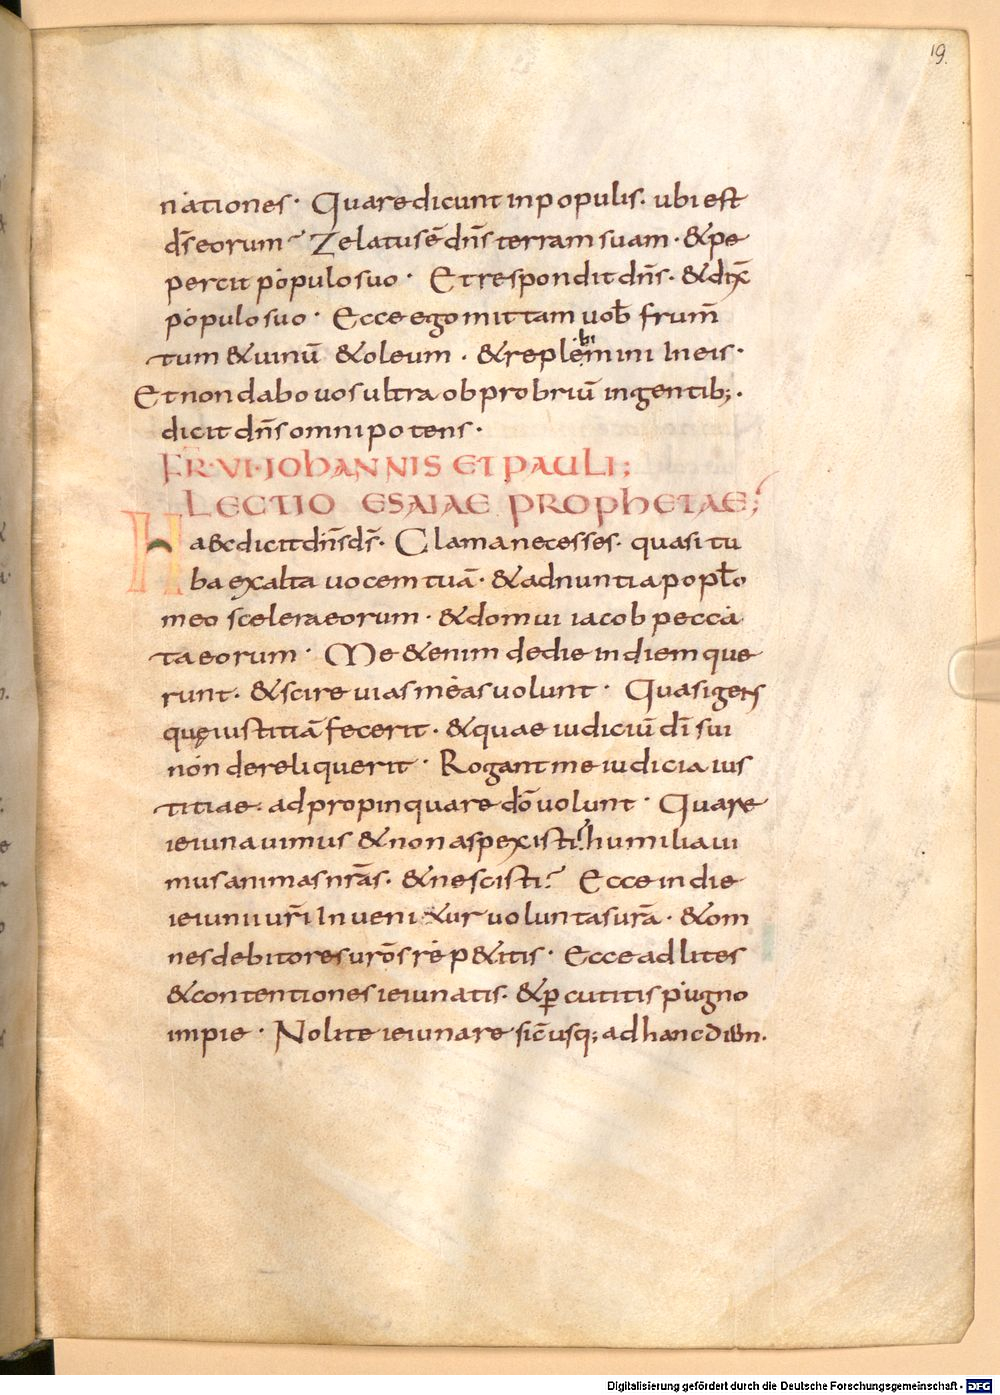 19.
nationes · Quare dicunt in populis · ubi est
ds̄ eorum? Zelatus ē dn̄s terram suam · & pe
percit populo suo · Et respondit dn̄s · & dix̄
populo suo · Ecce ego mittam uob̄ frum̄
tum & uinū & oleum · & replebimini In eis ·
Et non dabo uos ultra obprobriū in gentib; ·
dicit dn̄s omnipotens ·
FR̄ · VI · IOHANNIS ET PAULI;
LECTIO ESAIAE PROPHETAE;
Haec dicit dn̄s ds̄ · Clama ne cesses · quasi tu
ba exalta uocem tuā · & adnuntia poplo
meo scelera eorum · & domui iacob pecca
ta eorum · Me & enim de die in diem que
runt · & scire uias meas uolunt · Quasi gens
quę iustitiā fecerit · & quae iudiciū dī sui
non dereliquerit · Rogant me iudicia ius
titiae · adpropinquare dō uolunt · Quare
ieiunauimus & non aspexisti? humiliaui
mus animas nr̄as · & nescisti? Ecce in die
ieiunii ur̄i Inuenitur uoluntas ur̄a · & om
nes debitores ur̄os rep&itis · Ecce ad lites
& contentiones ieiunatis · & ꝑcutitis pugno
impie · Nolite ieiunare sic̄ usq; ad hanc diem ·
Digitalisierung gefördert durch die Deutsche Forschungsgemeinschaft - DFG